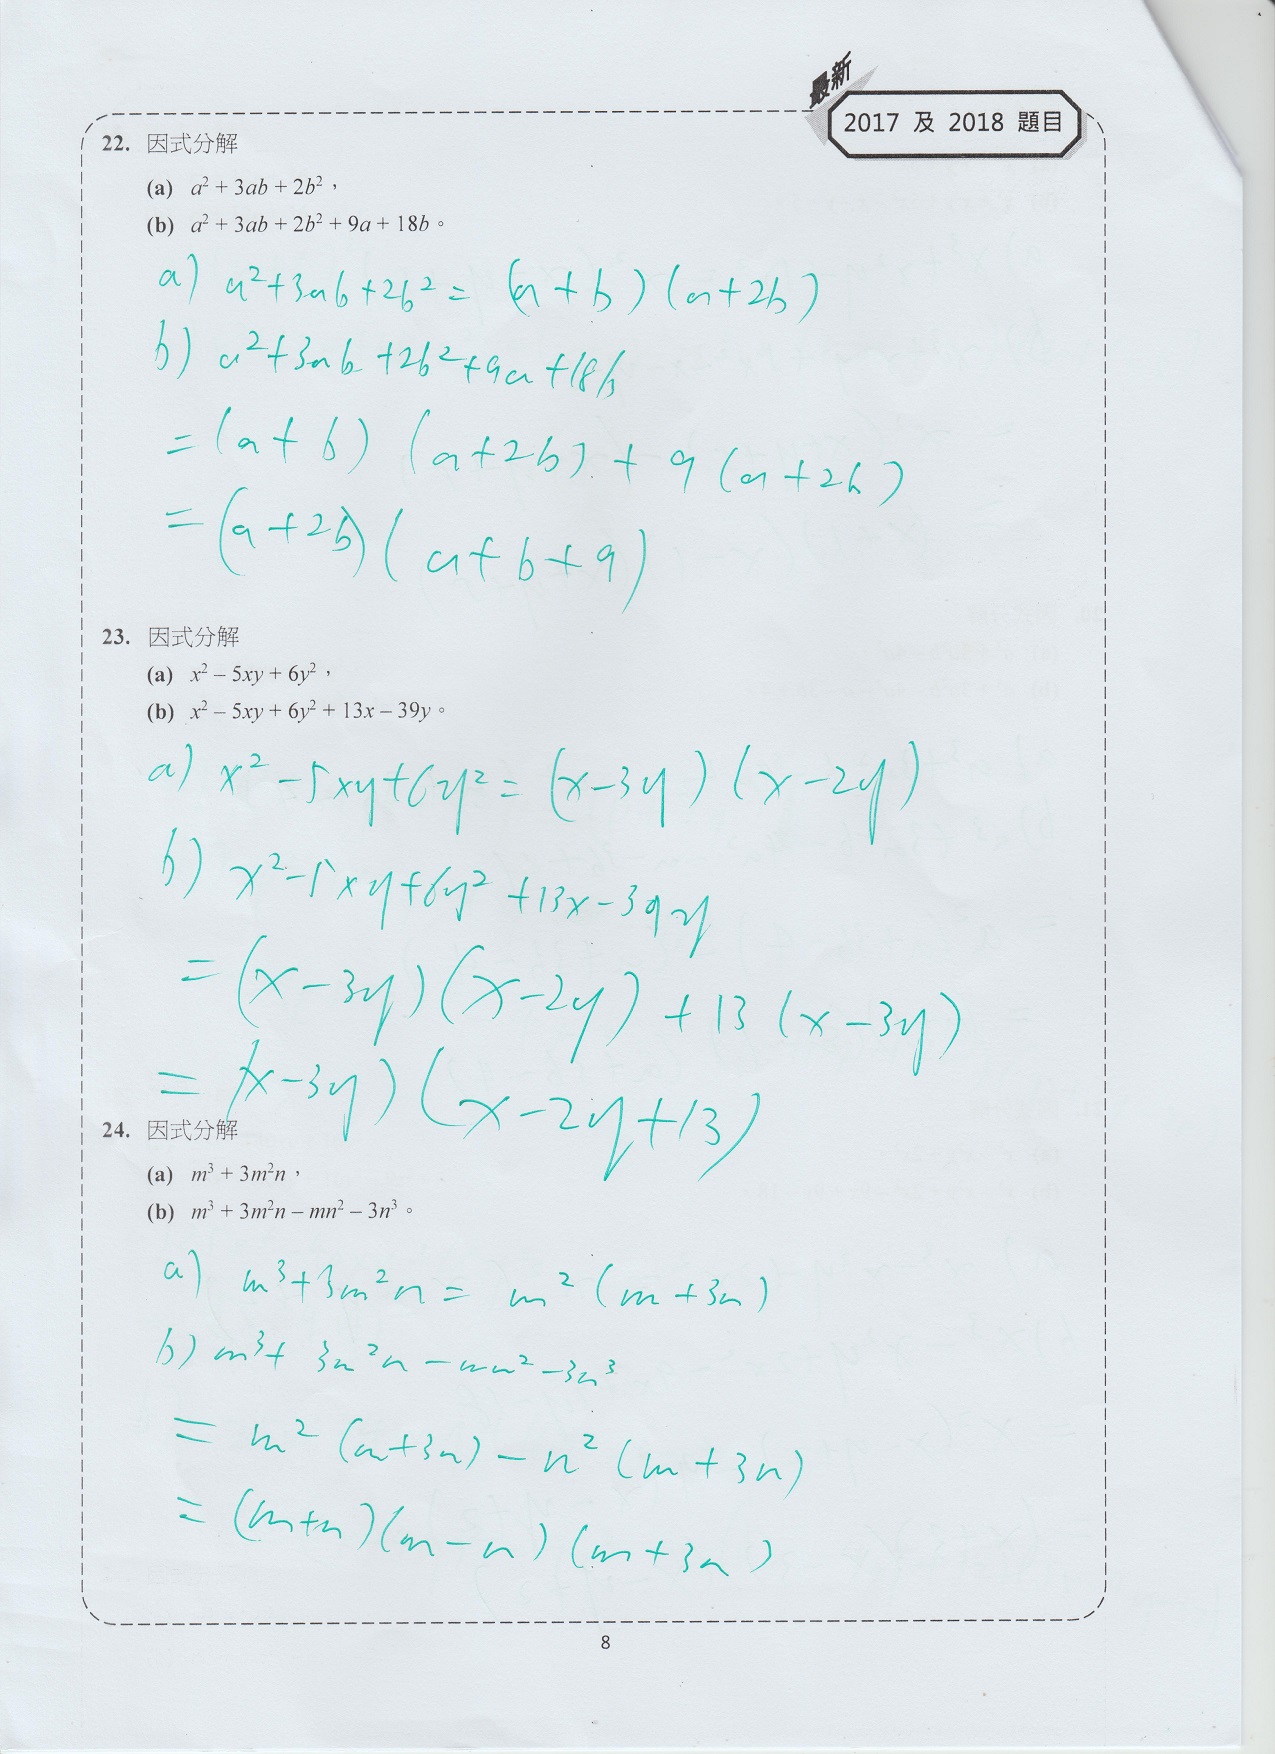 最新
2017 及 2018 題目
22. 因式分解
(a) a² + 3ab + 2b²，
(b) a² + 3ab + 2b² + 9a + 18b。
a) a²+3ab+2b² = (a+b)(a+2b)
b) a²+3ab+2b²+9a+18b
= (a+b)(a+2b) + 9(a+2b)
= (a+2b)(a+b+9)
23. 因式分解
(a) x² – 5xy + 6y²，
(b) x² – 5xy + 6y² + 13x – 39y。
a) x²-5xy+6y² = (x-3y)(x-2y)
b) x²-5xy+6y²+13x-39y
= (x-3y)(x-2y)+13(x-3y)
= (x-3y)(x-2y+13)
24. 因式分解
(a) m³ + 3m²n，
(b) m³ + 3m²n – mn² – 3n³。
a) m³+3m²n = m²(m+3n)
b) m³+3m²n-mn²-3n³
= m²(m+3n)-n²(m+3n)
= (m+n)(m-n)(m+3n)
8